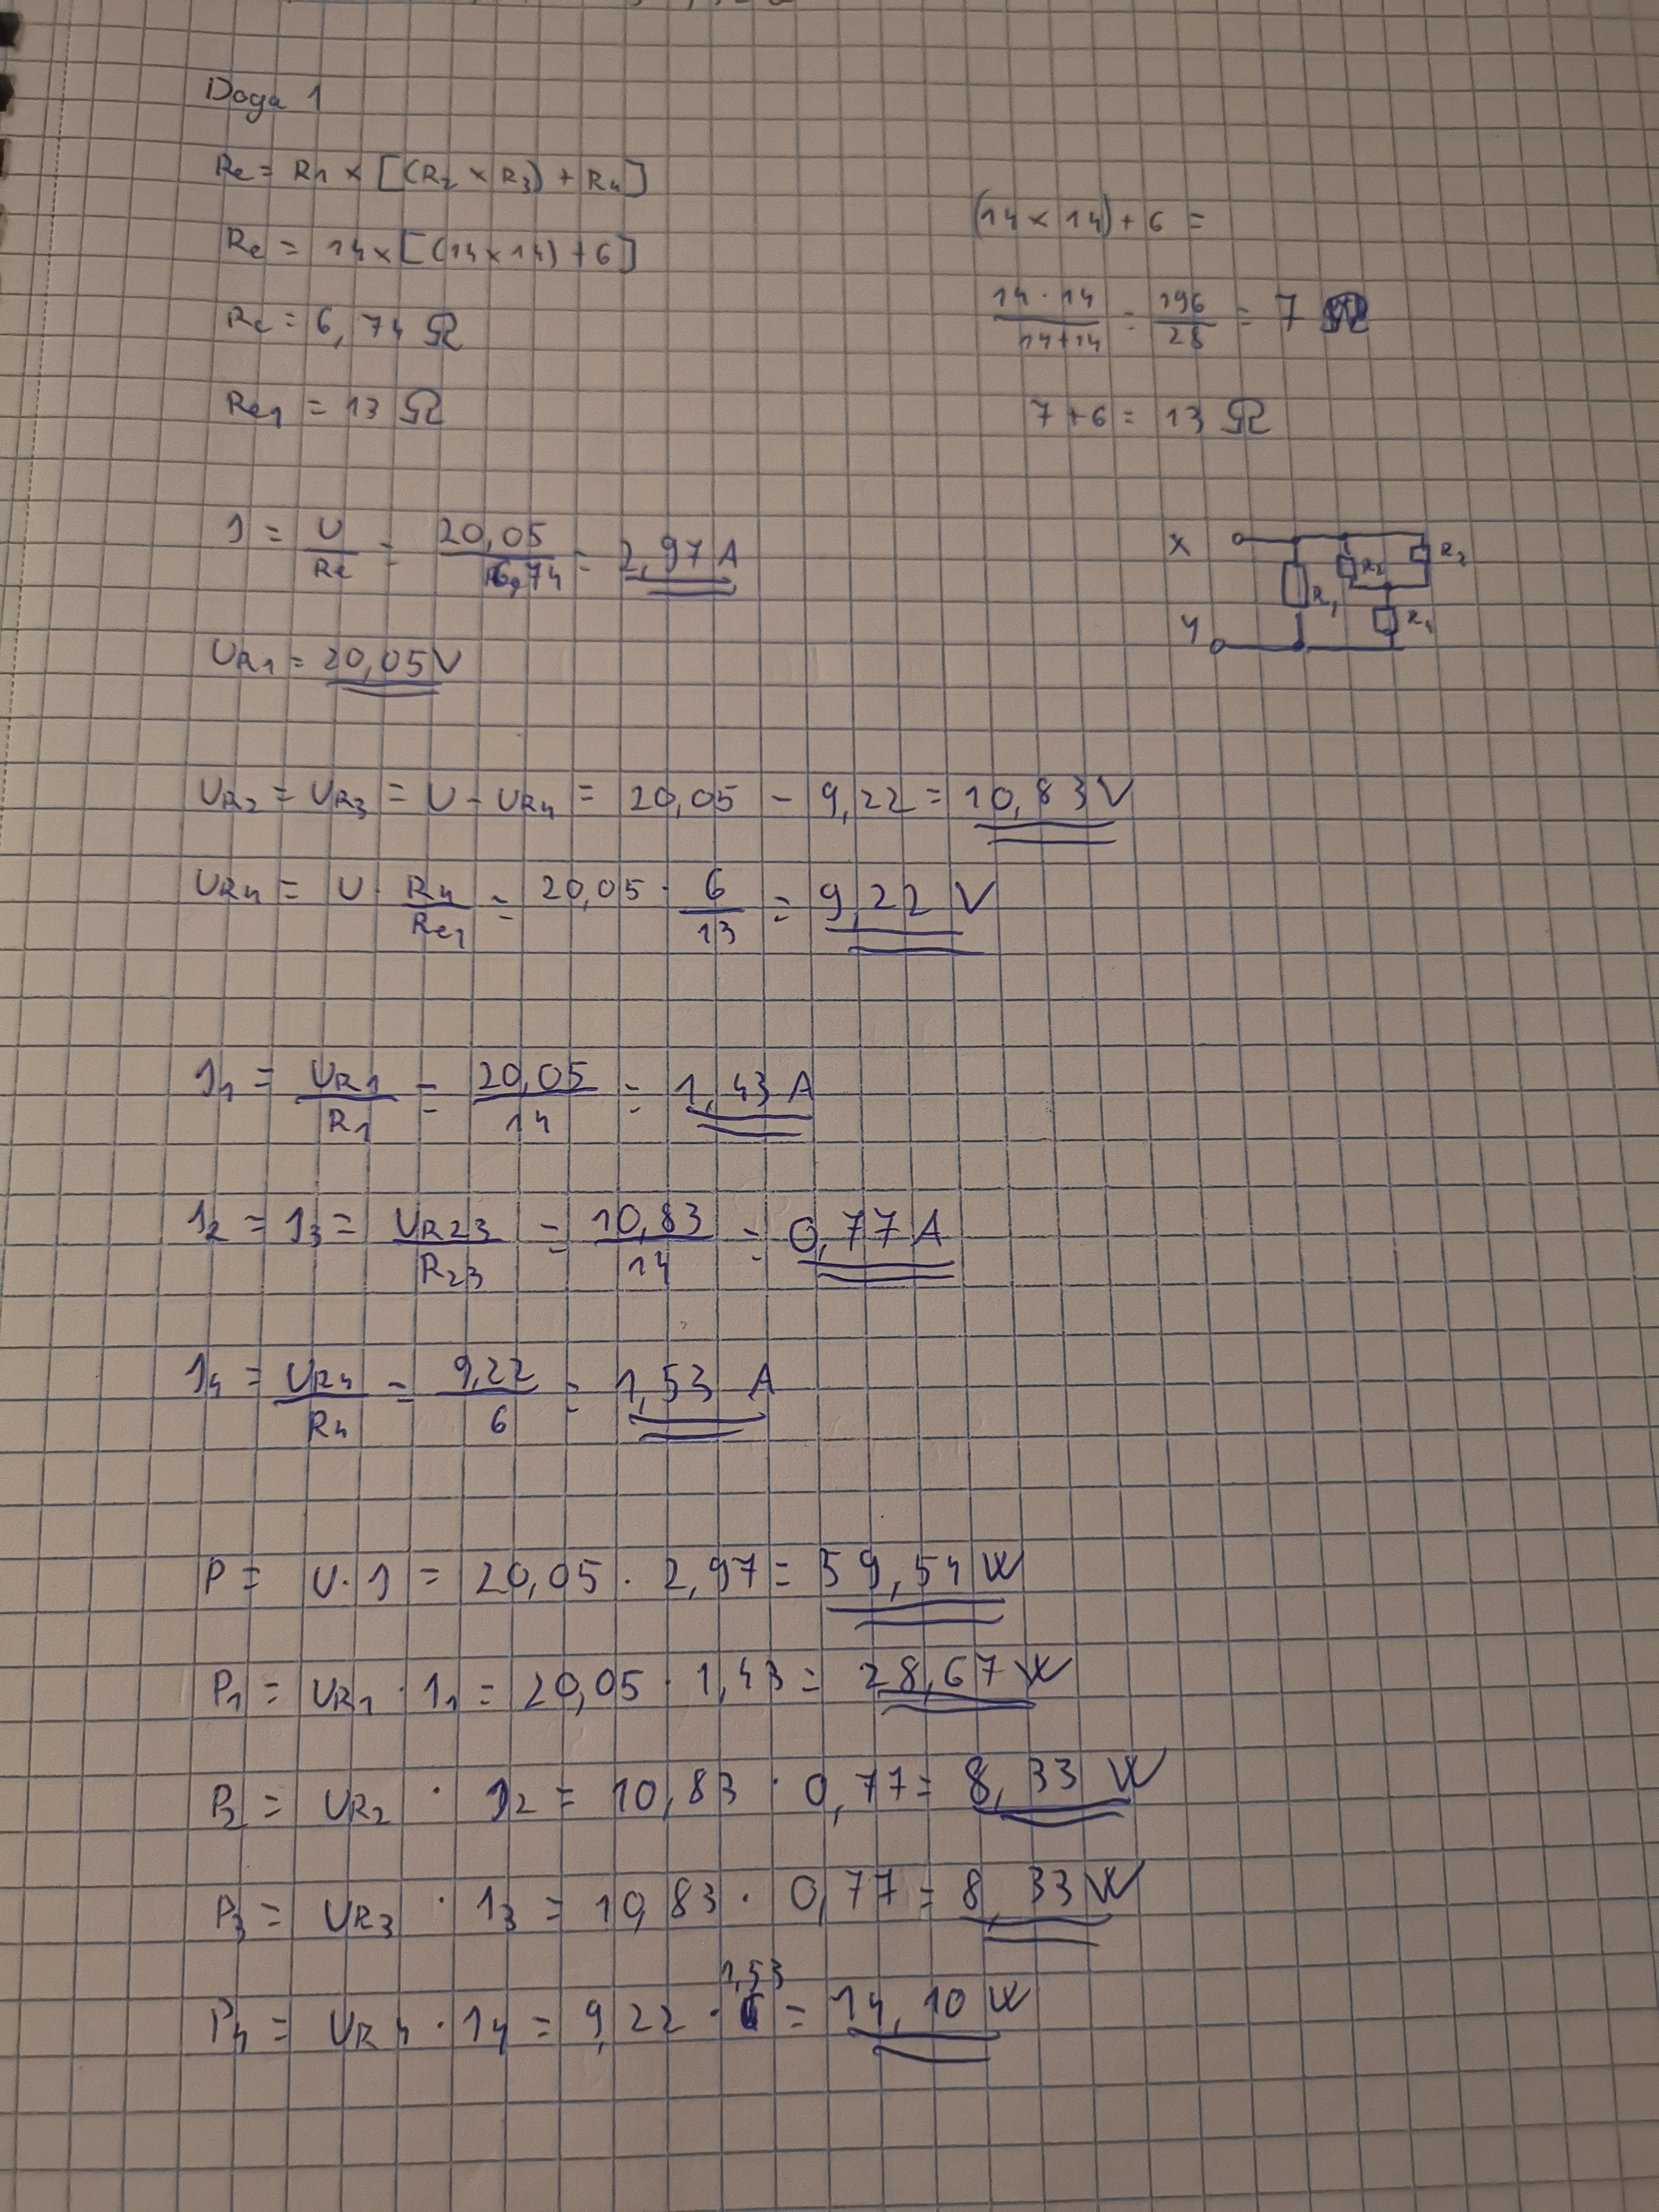 Doga 1
Re = R1 × [(R2 × R3) + R4]
(14 × 14) + 6 =
Re = 14 × [(14 × 14) + 6]
Re = 6,74 Ω
14 · 14 / 14+14 = 196 / 28 = 7 Ω
Re1 = 13 Ω
7 + 6 = 13 Ω
I = U / Re = 20,05 / 6,74 = 2,97 A
X
R2
R3
R1
R4
Y
UR1 = 20,05 V
UR2 = UR3 = U - UR4 = 20,05 - 9,22 = 10,83 V
UR4 = U · R4 / Re1 = 20,05 · 6 / 13 = 9,22 V
I1 = UR1 / R1 = 20,05 / 14 = 1,43 A
I2 = I3 = UR23 / R23 = 10,83 / 14 = 0,77 A
I4 = UR4 / R4 = 9,22 / 6 = 1,53 A
P = U · I = 20,05 · 2,97 = 59,54 W
P1 = UR1 · I1 = 20,05 · 1,43 = 28,67 W
P2 = UR2 · I2 = 10,83 · 0,77 = 8,33 W
P3 = UR3 · I3 = 10,83 · 0,77 = 8,33 W
P4 = UR4 · I4 = 9,22 · 1,53 = 14,10 W